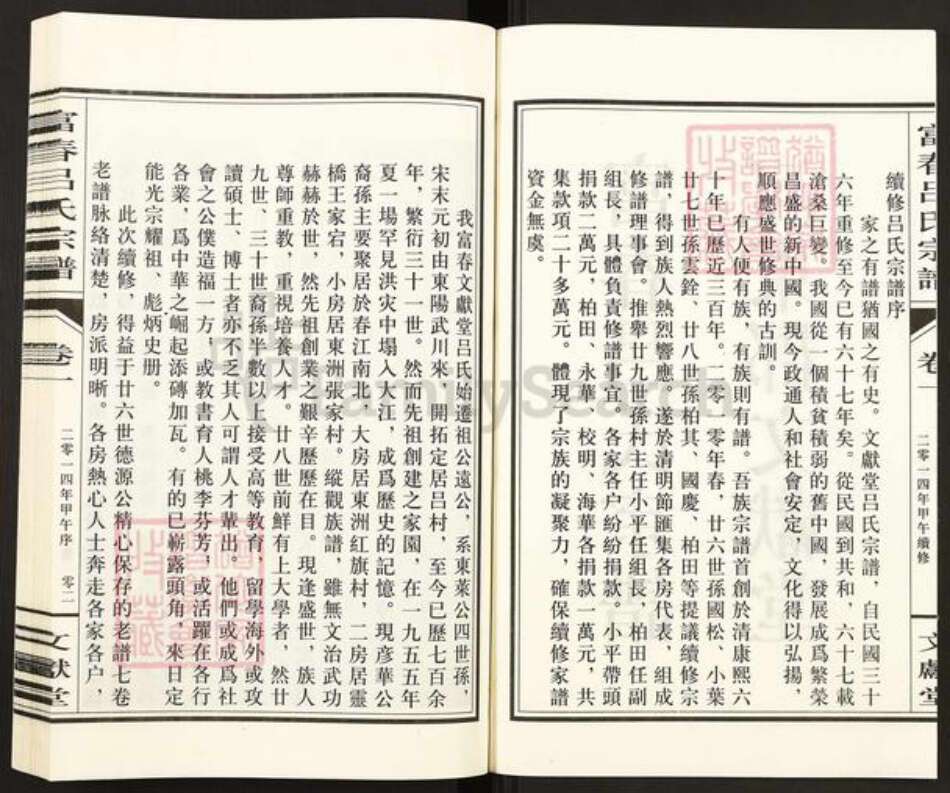 續修呂氏宗譜序
家之有譜猶國之有史。文獻堂呂氏宗譜，自民國三十
六年重修至今已有六十七年矣。從民國到共和，六十七載
滄桑巨變。我國從一個積貧積弱的舊中國，發展成爲繁榮
昌盛的新中國。現今政通人和社會安定，文化得以弘揚，
順應盛世修典的古訓。
有人便有族，有族則有譜。吾族宗譜首創於清康熙六
十年已歷近三百年。二零一零年春，廿六世孫國松、小葉
廿七世孫雲銓、廿八世孫柏其、國慶、柏田等提議續修宗
譜，得到族人熱烈響應。遂於清明節匯集各房代表，組成
修譜理事會。推舉廿九世孫村主任小平任組長，柏田任副
組長，具體負責修譜事宜。各家各户紛紛捐款。小平帶頭
捐款二萬元，柏田、永華、校明、海華各捐款一萬元，共
集款項二十多萬元。體現了宗族的凝聚力，確保續修家譜
資金無虞。
富春呂氏宗譜
卷一
二零一四年甲午續修
文獻堂
我富春文獻堂呂氏始遷祖公遠公，系東萊公四世孫，
宋末元初由東陽武川來，開拓定居呂村，至今已歷七百余
年，繁衍三十一世。然而先祖創建之家園，在一九五五年
夏一場罕見洪灾中塌入大江，成爲歷史的記憶。現彦華公
裔孫主要聚居於春江南北，大房居東洲紅旗村，二房居靈
橋王家宕，小房居東洲張家村。縱觀族譜，雖無文治武功
赫赫於世，然先祖創業之艱辛歷歷在目。現逢盛世，族人
尊師重教，重視培養人才。廿八世前鮮有上大學者，然廿
九世、三十世裔孫半數以上接受高等教育，留學海外或攻
讀碩士、博士者亦不乏其人可謂人才輩出。他們或成爲社
會之公僕造福一方，或教書育人桃李芬芳，或活躍在各行
各業，爲中華之崛起添磚加瓦。有的已嶄露頭角，來日定
能光宗耀祖、彪炳史册。
此次續修，得益于廿六世德源公精心保存的老譜七卷
老譜脉絡清楚，房派明晰。各房熱心人士奔走各家各户，
富春呂氏宗譜
卷一
二零一四年甲午序
零二
文獻堂
FamilySearch